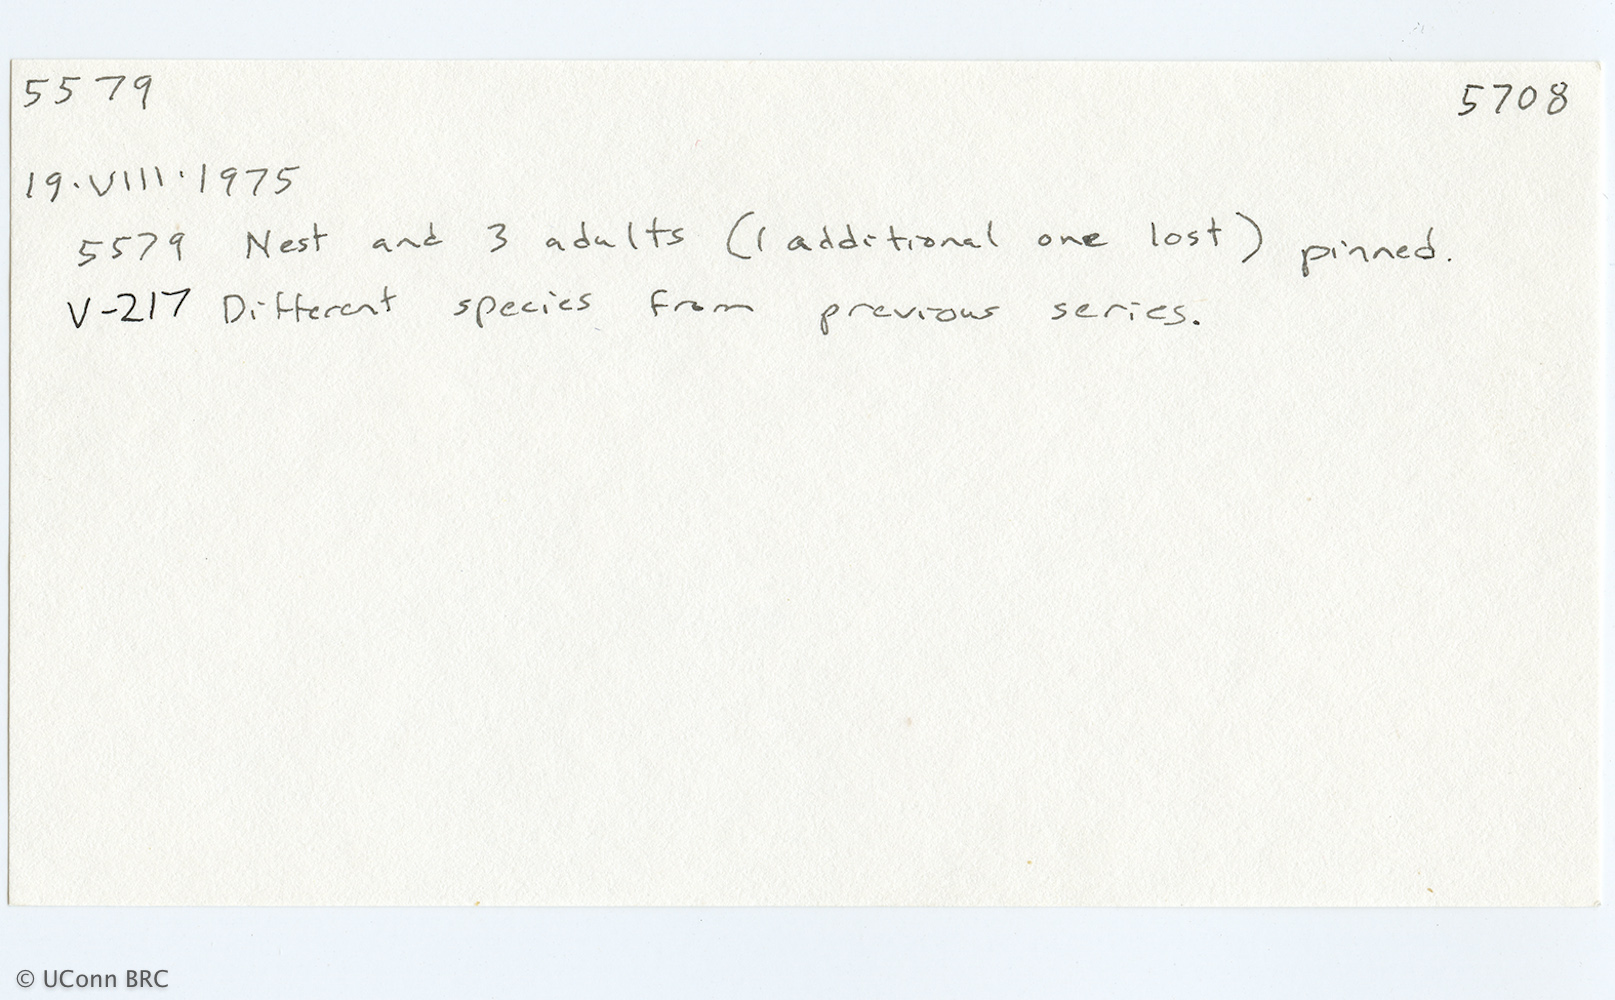 5579 5708
19·VIII·1975
5579 Nest and 3 adults (1 additional one lost) pinned.
V-217 Different species from previous series.
© UConn BRC